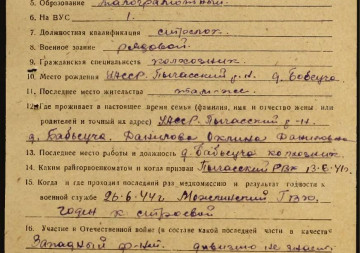 5. Образование малограмотный
6. На ВУС 1.
7. Должностная квалификация стрелок
8. Военное звание рядовой
9. Гражданская специальность колхозник
10. Место рождения УАССР. Пычасский р-н. д. Бабъсуча
11. Последнее место жительства там же
12. Где проживает в настоящее время семья (фамилия, имя и отчество жены или
родителей и точный на адрес) УАССР. Пычасский р-н.
д. Бабьсуча.
13. Последнее место работы и должность д. Бабьсуча колхозник
14. Каким райгорвоенкоматом и когда призван Пычасский РВК
15. Когда и где проходил последний раз медкомиссию и результат годности к
военной службе 26-6-44г
годен к строевой
16. Участие в Отечественной войне (в составе какой последней части и в качестве
Западный фронт. дивизию не знает.